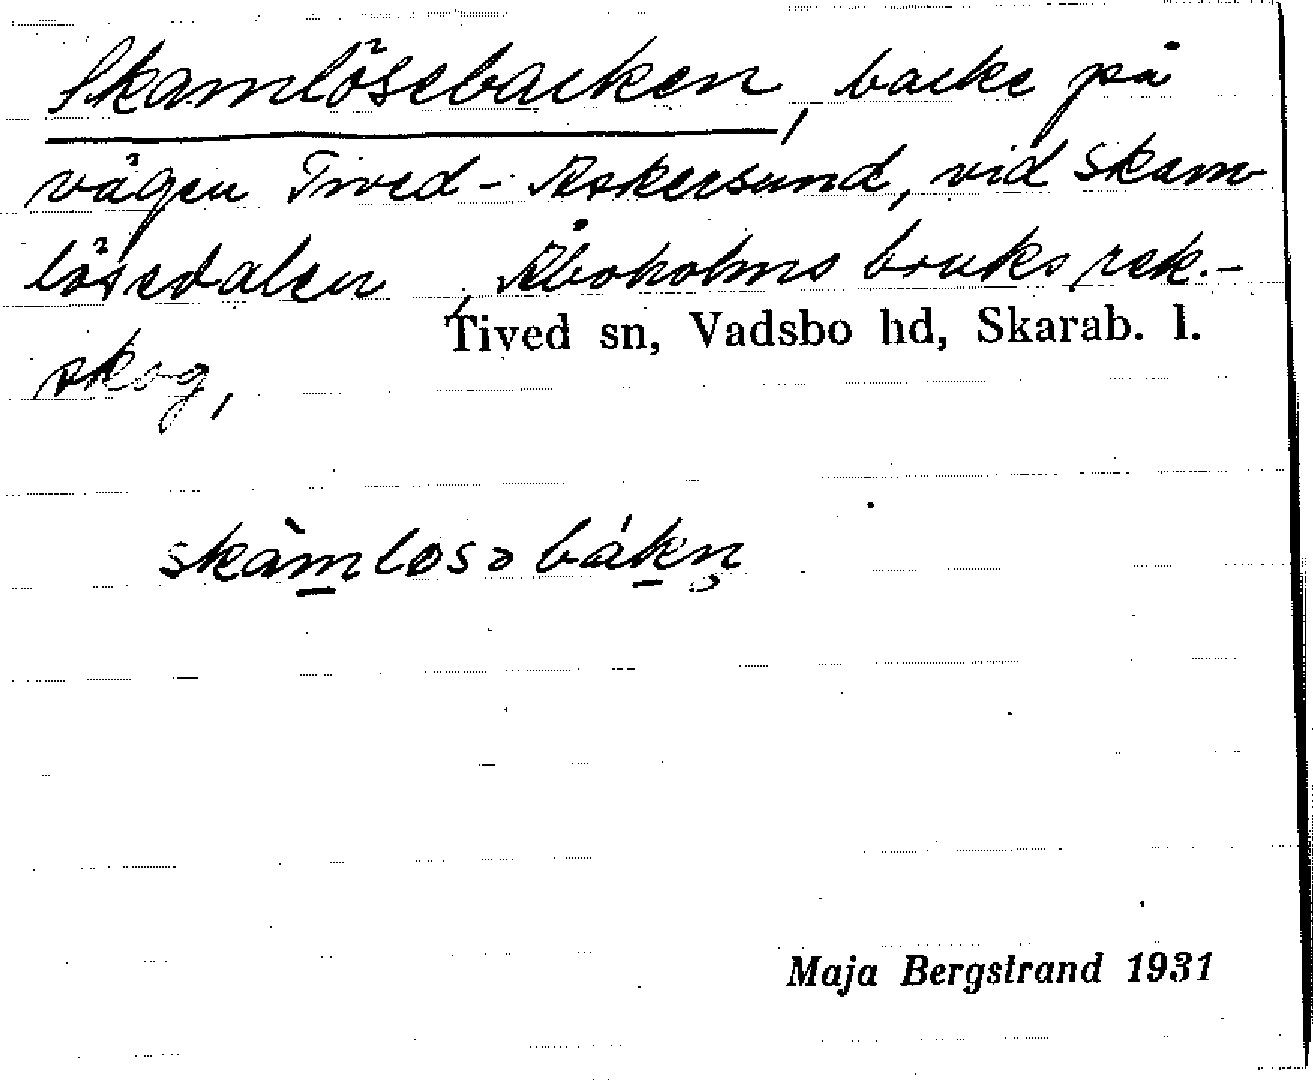 Skamlösebacken, backe på
vägen Tived - Askersund, vid Skam-
lösedalen, Åboholms bruks rek.-
Tived sn, Vadsbo hd, Skarab. l.
skog,
skàmlosə bákn̥
Maja Bergstrand 1931